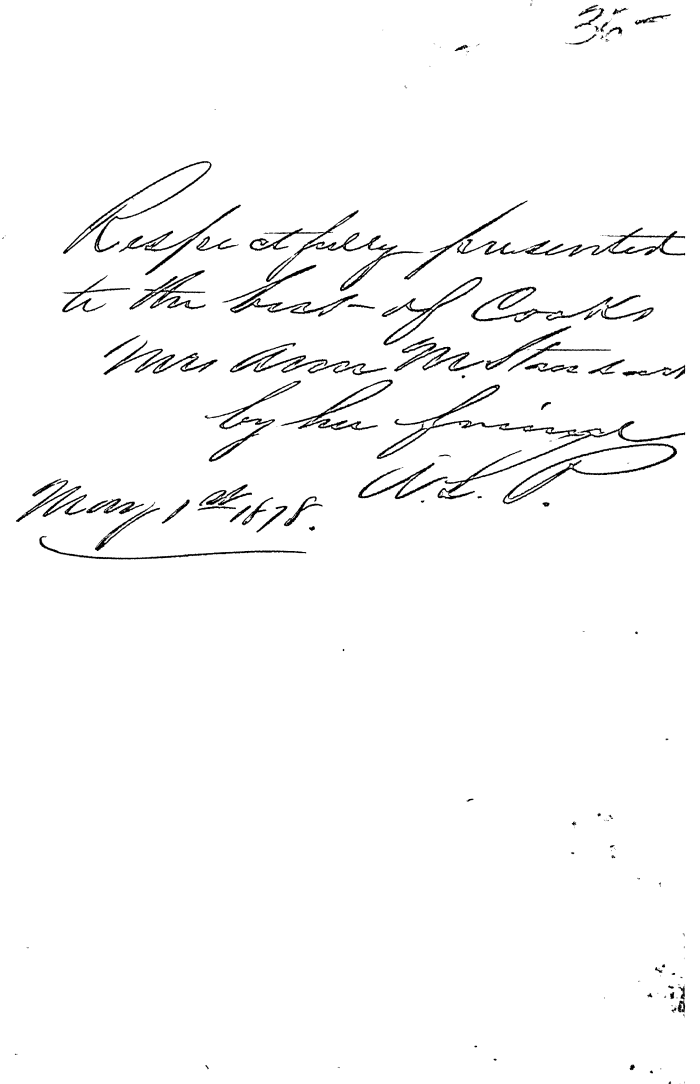 Respectfully presented
to the best of Cooks
Mrs Ann M.
by her friend
L. P.
May 1st 1878.